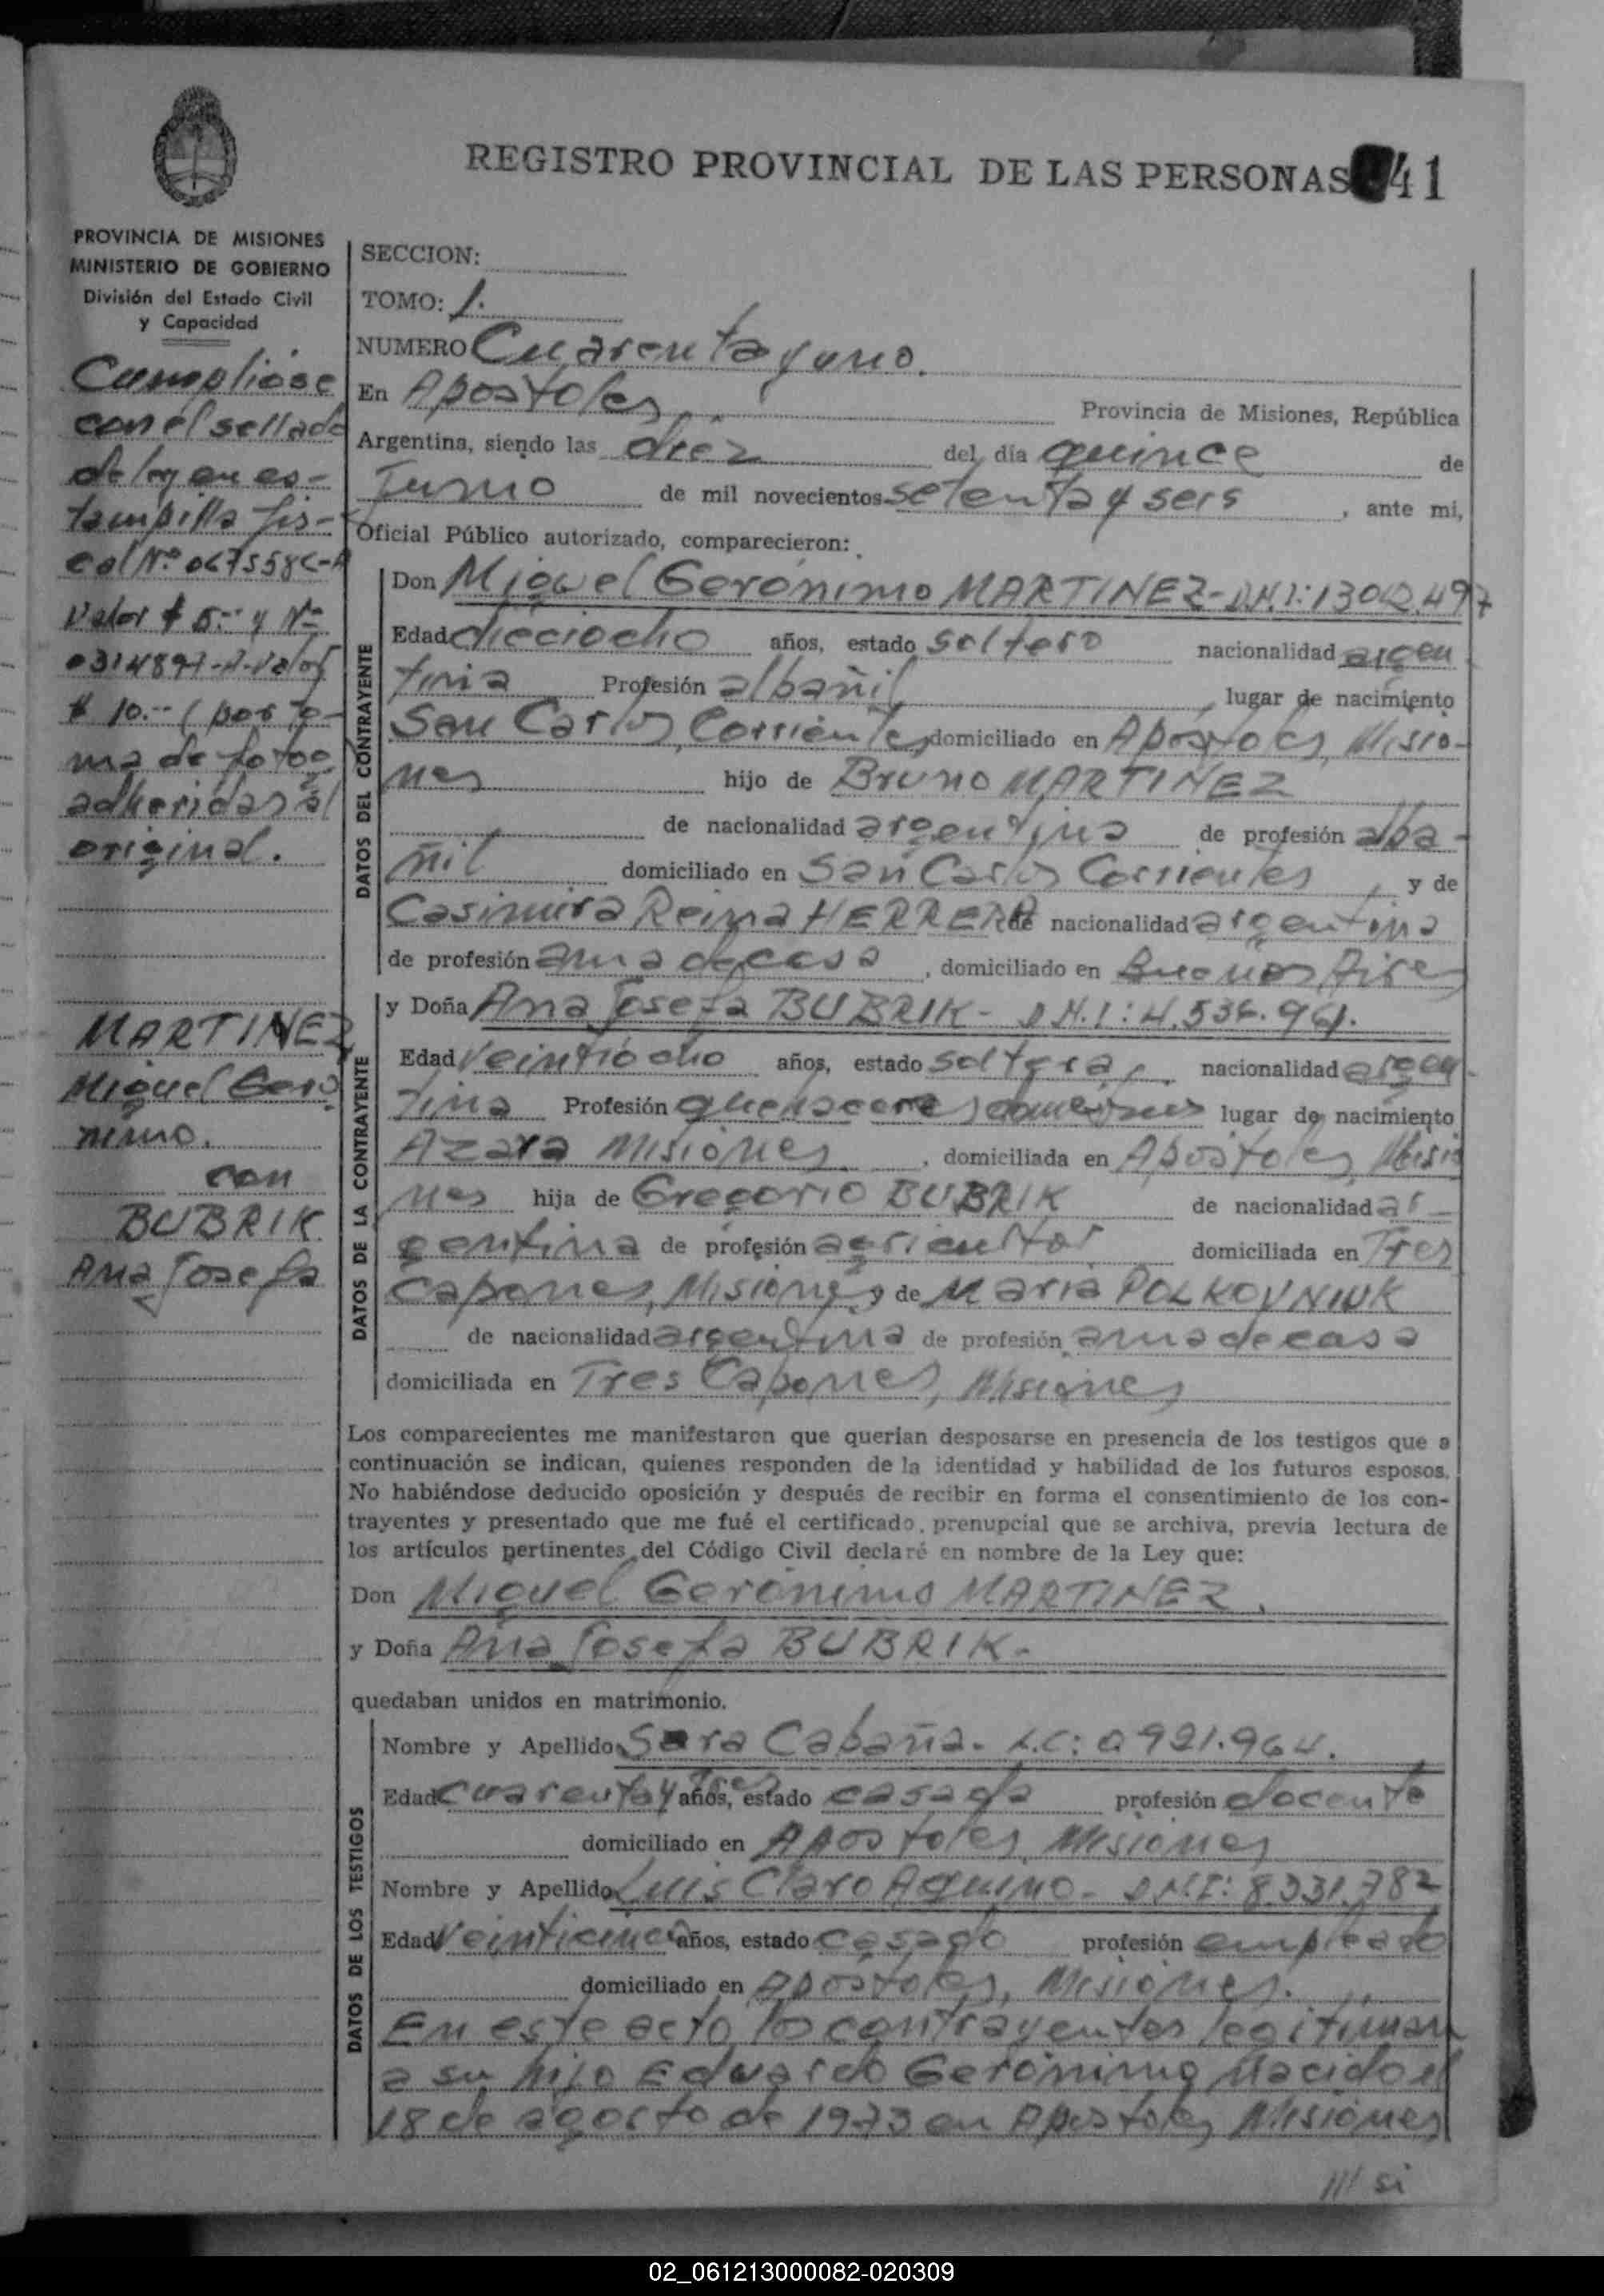 REGISTRO PROVINCIAL DE LAS PERSONAS 41
PROVINCIA DE MISIONES
MINISTERIO DE GOBIERNO
División del Estado Civil
y Capacidad
Cumplióse
con el sellado
de ley en es-
tampilla fis-
cal Nº
Valor $ 5.-- y Nº
0314897-A-Valor
$ 10.-- ( por to-
ma de fotos
adheridas al
original.
MARTINEZ
Miguel Geró
nimo.
con
BUBRIK
Ana Josefa
SECCION:
TOMO: 1.
NUMERO Cuarenta y uno.
En Apostoles, Provincia de Misiones, República
Argentina, siendo las diez del día quince de
Junio de mil novecientos setenta y seis, ante mi,
Oficial Público autorizado, comparecieron:
DATOS DEL CONTRAYENTE
Don Miguel Gerónimo MARTINEZ- D.N.I:
Edad dieciocho años, estado soltero nacionalidad argen
tina Profesión albañil, lugar de nacimiento
San Carlos, Corrientes, domiciliado en Apóstoles, Misio-
nes hijo de Bruno MARTINEZ
de nacionalidad argentina de profesión alba-
ñil domiciliado en San Carlos Corrientes, y de
Casimira Reina HERRERA de nacionalidad argentina
de profesión ama de casa, domiciliado en Buenos Aires
DATOS DE LA CONTRAYENTE
y Doña Ana Josefa BUBRIK- D.N.I: 4.536.961.
Edad veintiocho años, estado soltera, nacionalidad argen-
tina Profesión quehaceres domésticos lugar de nacimiento
Azara Misiones, domiciliada en Apóstoles, Misio
nes hija de Gregorio BUBRIK de nacionalidad ar-
gentina de profesión agricultor domiciliada en Tres
Capones, Misiones y de Maria POLKOVNIUK
de nacionalidad argentina de profesión ama de casa
domiciliada en Tres Capones, Misiones
Los comparecientes me manifestaron que querían desposarse en presencia de los testigos que a
continuación se indican, quienes responden de la identidad y habilidad de los futuros esposos.
No habiéndose deducido oposición y después de recibir en forma el consentimiento de los con-
trayentes y presentado que me fué el certificado, prenupcial que se archiva, previa lectura de
los artículos pertinentes del Código Civil declaré en nombre de la Ley que:
Don Miguel Gerónimo MARTINEZ,
y Doña Ana Josefa BUBRIK-
quedaban unidos en matrimonio.
DATOS DE LOS TESTIGOS
Nombre y Apellido Sara Cabaña. L.C: 0921.964.
Edad cuarenta y tres años, estado casada profesión docente
domiciliado en Apostoles, Misiones
Nombre y Apellido Luis Claro Aquino- D.N.I: 8.331.782
Edad veinticinco años, estado casado profesión empleado
domiciliado en Apóstoles, Misiones.
En este acto los contrayentes legitiman
a su hijo Eduardo Gerónimo, nacido el
18 de agosto de 1973 en Apostoles, Misiones
/// si
02_061213000082-020309